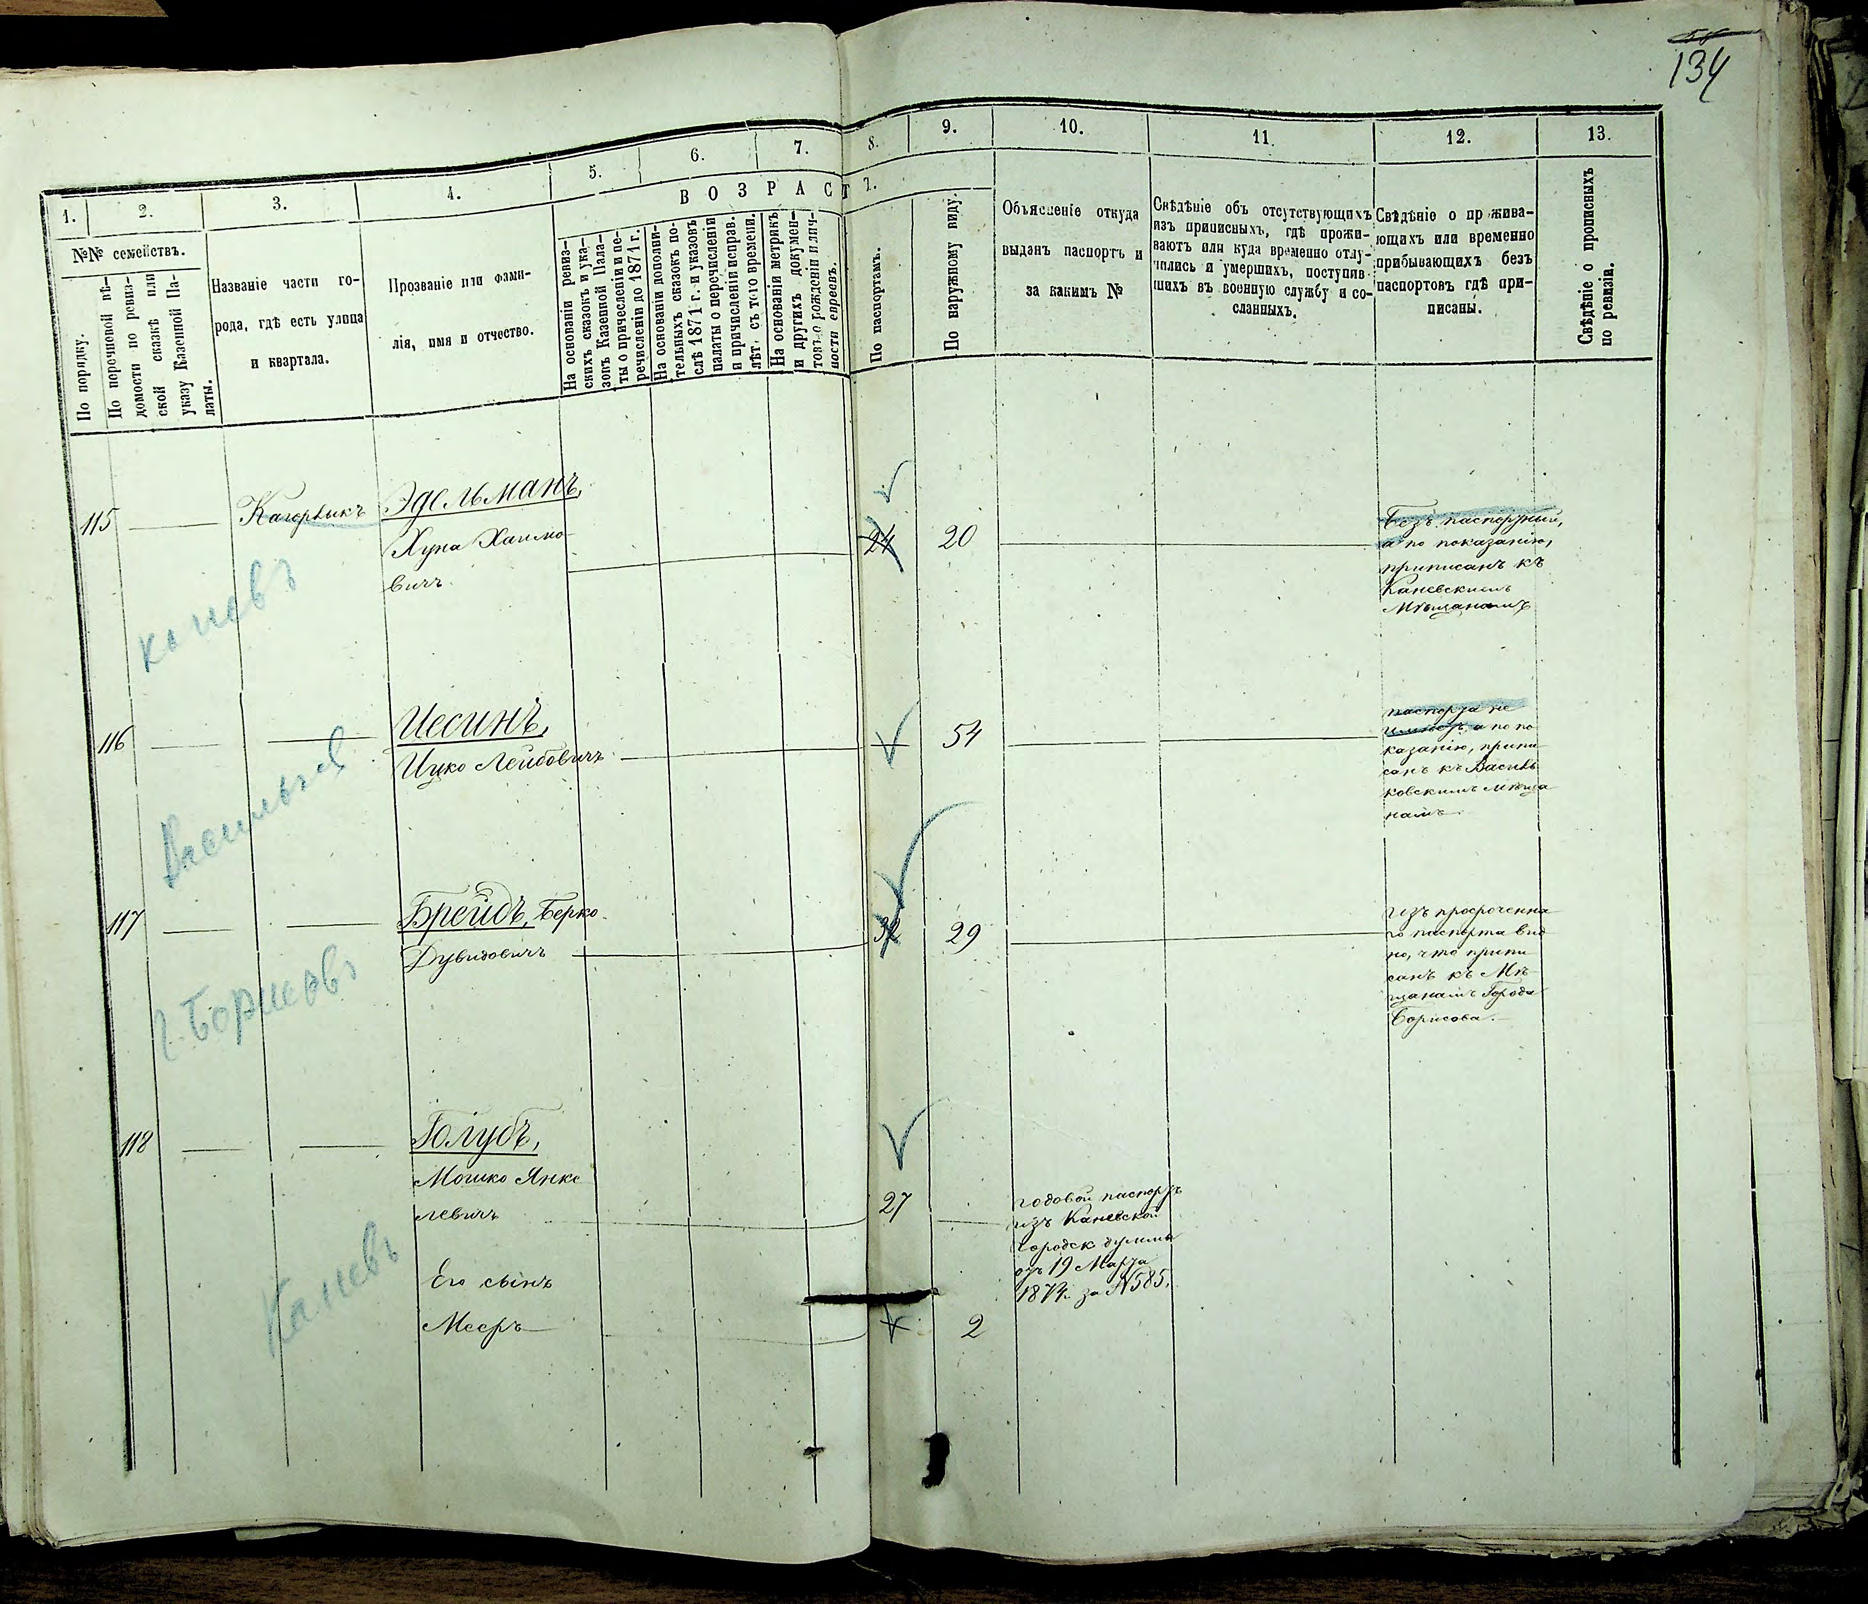 134
1.
2.
3.
4.
5.
6.
7.
8.
9.
10.
11.
12.
13.
ВОЗРАСТ
№№ семействъ.
По порядку.
По перечневой вѣ-
домости по ревиз-
ской сказкѣ или
указу Казенной Па-
латы.
Названіе части го-
рода, гдѣ есть улица
и квартала.
Прозваніе или фами-
лія, имя и отчество.
На основаніи ревиз-
скихъ сказокъ и ука-
зовъ Казенной Пала-
ты о причисленіи и пе-
речисленіи до 1871 г.
На основаніи дополни-
тельныхъ сказокъ по-
слѣ 1871 г. и указовъ
палаты о перечисленіи
и причисленіи исправ.
лѣт. съ того времени.
На основаніи метрикъ
и другихъ докумен-
товъ о рожденіи и лич-
ности евреевъ.
По паспортамъ.
По наружному виду.
Объясненіе откуда
выданъ паспортъ и
за какимъ №
Свѣдѣніе объ отсутствующихъ
изъ приписныхъ, гдѣ прожи-
ваютъ или куда временно отлу-
чились и умершихъ, поступив-
шихъ въ военную службу и со-
сланныхъ.
Свѣдѣніе о прожива-
ющихъ или временно
прибывающихъ безъ
паспортовъ гдѣ при-
писаны.
Свѣдѣніе о прописныхъ
по ревизіи.
115
Кагорлыкъ
Эдельманъ,
Хуна Хаимо-
вичъ
24
20
Безъ паспортный,
а по показанію,
приписанъ къ
Каневскимъ
Мѣщанамъ
116
Иесинъ,
Ицко Лейбовичъ
54
паспорта не
имѣетъ, а по по
казанію, припи
санъ къ Василь
ковскимъ мѣща
намъ
Васильков
117
Брейдъ, Берко
Дувидовичъ
32
29
изъ просроченна
го паспорта вид
но, что припи
санъ къ Мѣ
щанамъ Города
Борисова.
г. Борисовъ
118
Голубъ,
Мошко Янке
левичъ
27
годовой паспортъ
изъ Каневской
городск думы
отъ 19 Марта
187 за №585.
Каневъ
Его сынъ
Мееръ
2